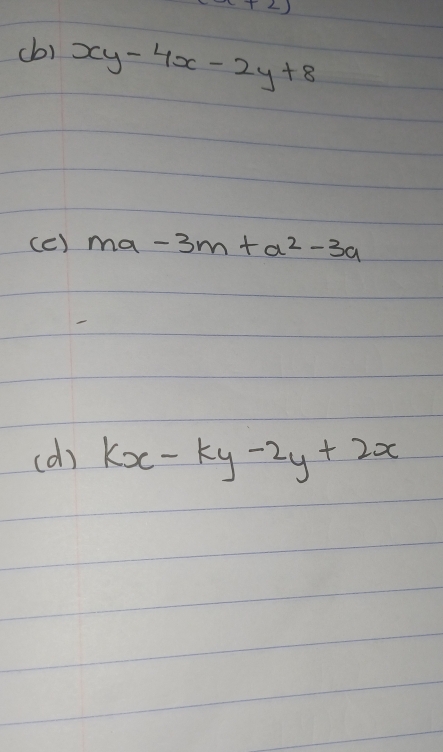 +2)
(b) xy - 4x - 2y + 8
(c) ma - 3m + a² - 3a
(d) kx - ky - 2y + 2x